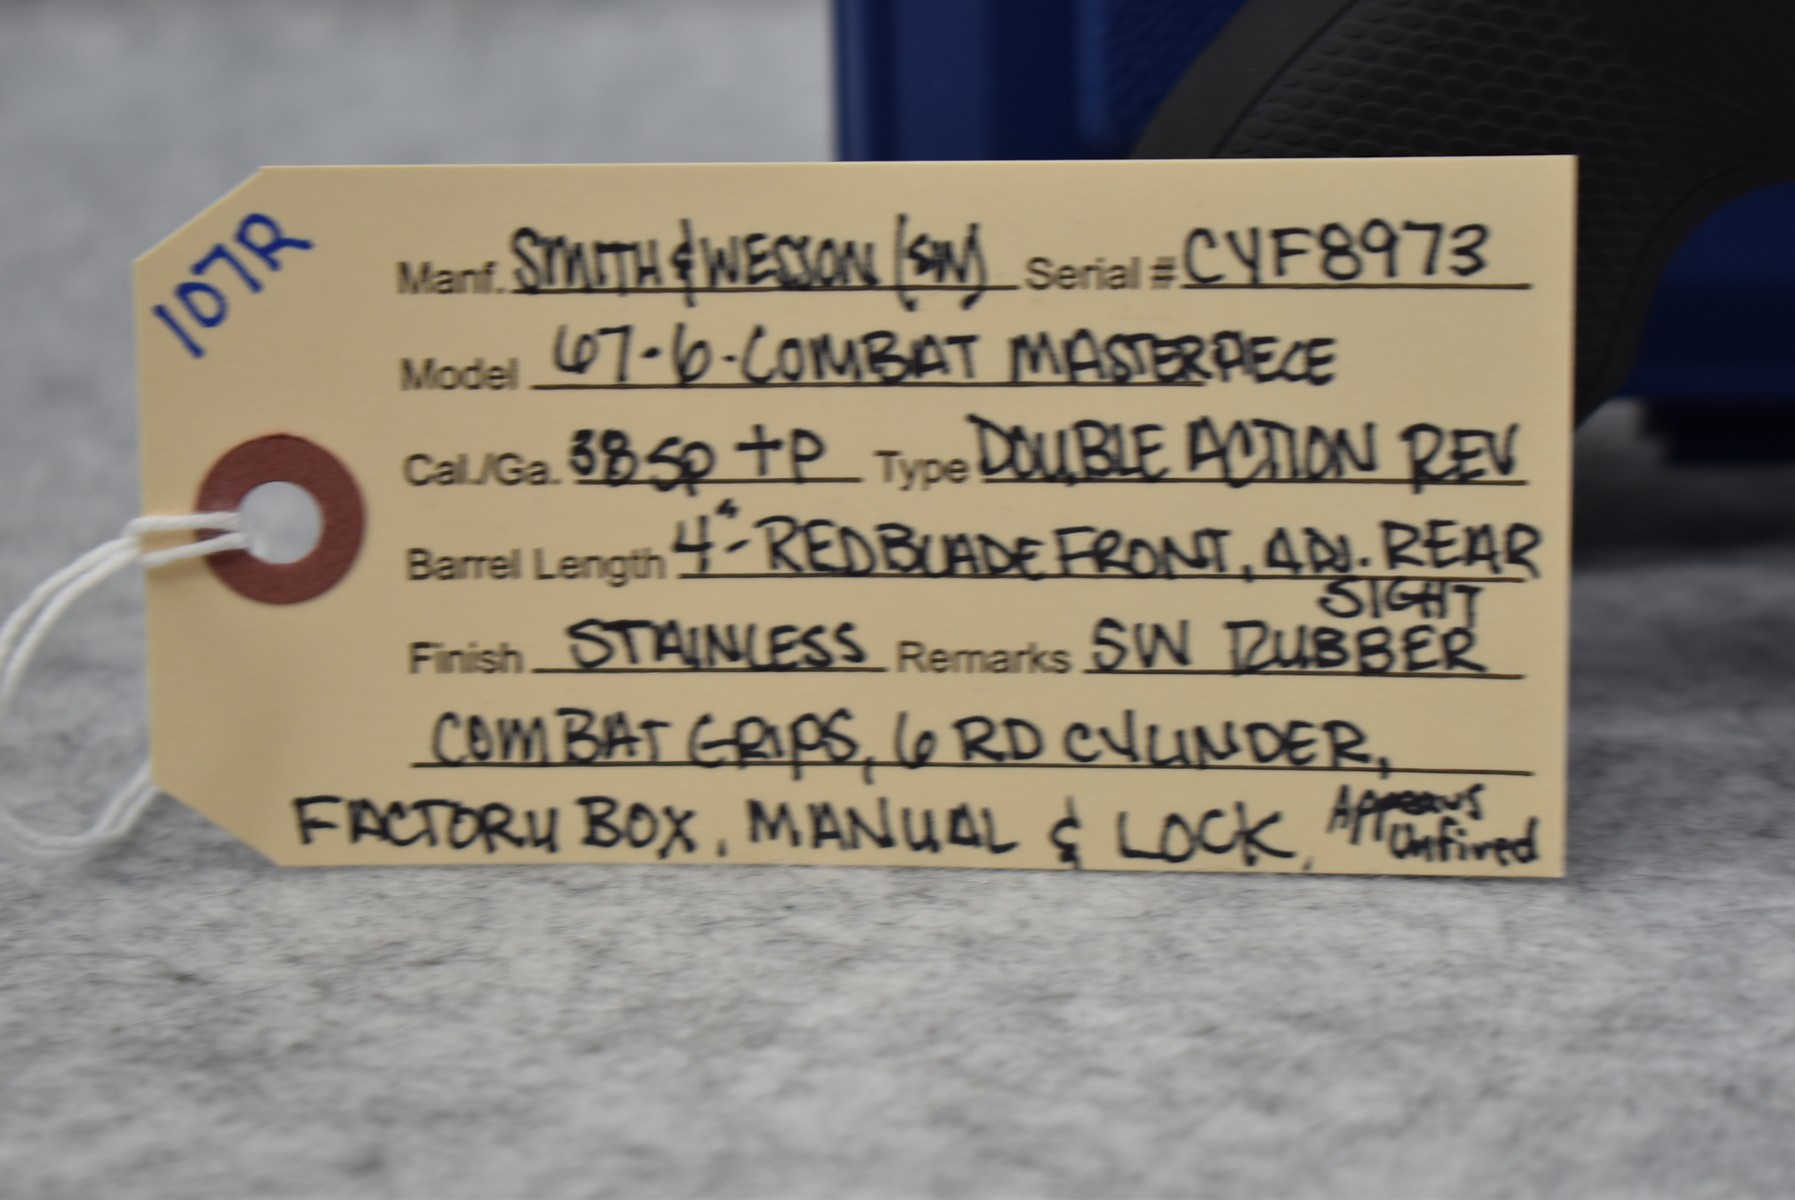 107R
Manf. SMITH & WESSON (SW) Serial # CYF8973
Model 67-6-COMBAT MASTERPIECE
Cal./Ga. 38 Sp +P Type DOUBLE ACTION REV
Barrel Length 4"- RED BLADE FRONT, ADJ. REAR
SIGHT
Finish STAINLESS Remarks SW RUBBER
COMBAT GRIPS, 6 RD CYLINDER,
FACTORY BOX, MANUAL & LOCK, Appears
Unfired